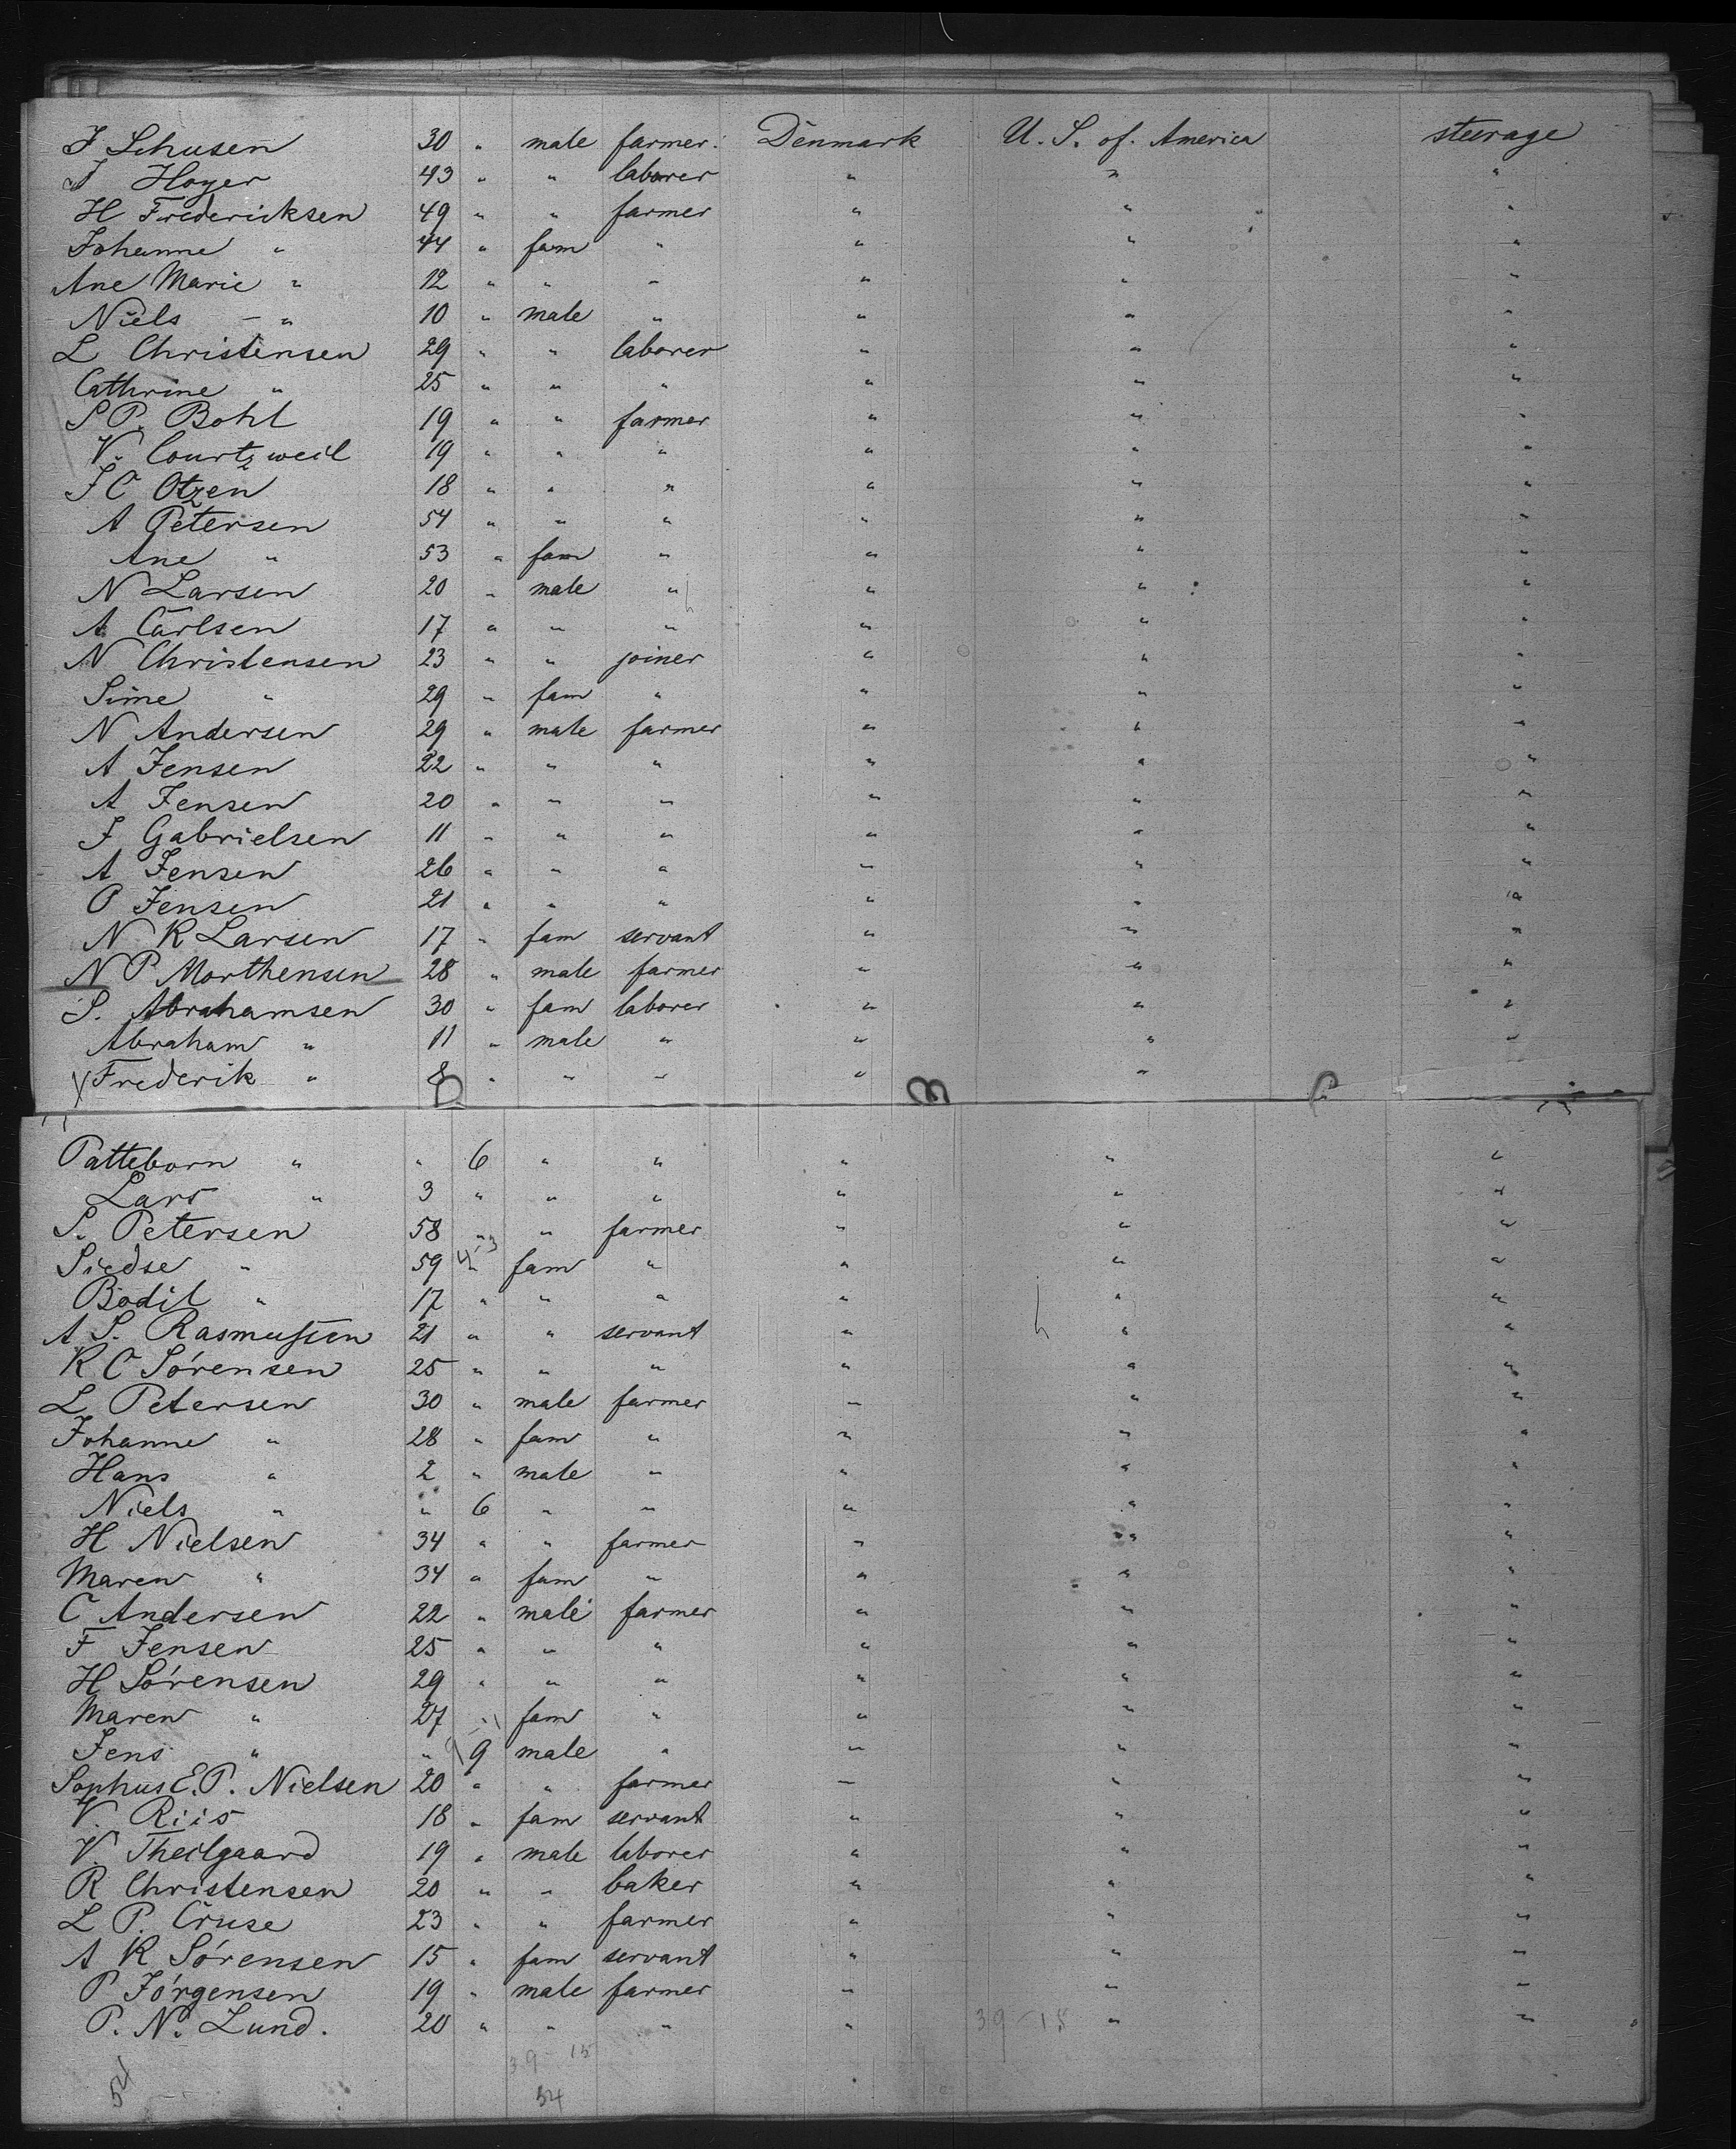 J Schusen 30 " male farmer. Denmark U. S. of. America steerage
J Hoyer 43 " " laborer " " "
H Fredericksen 49 " " farmer " " "
Johanne " 44 " fam " " " "
Ane Marie " 12 " " " " " "
Niels " 10 " male " " " "
L Christensen 29 " " laborer " " "
Cathrine " 25 " " " " " "
S P. Bohl 19 " " farmer " " "
V. Courtzweil 19 " " " " " "
J C Otzen 18 " " " " " "
A Petersen 54 " " " " " "
Ane " 53 " fam " " " "
N Larsen 20 " male " " " "
A Carlsen 17 " " " " " "
N Christensen 23 " " joiner " " "
Sime " 29 " fam " " " "
N Andersen 29 " male farmer " " "
A Jensen 22 " " " " " "
A Jensen 20 " " " " " "
J Gabrielsen 11 " " " " " "
A Jensen 26 " " " " " "
P Jensen 21 " " " " " "
N K Larsen 17 " fam servant " " "
N P Morthensen 28 " male farmer " " "
S. Abrahamsen 30 " fam laborer " " "
Abraham " 11 " male " " " "
Frederik " 8 " " " " "
Patteborn " " 6 " " " " "
Lars " 3 " " " " " "
S. Petersen 58 " " farmer " " "
Siedse " 59 " fam " " " "
Bodil " 17 " " " " " "
A S. Rasmussen 21 " " servant " " "
K C Sörensen 25 " " " " " "
L Petersen 30 " male farmer " " "
Johanne " 28 " fam " " " "
Hans " 2 " male " " " "
Niels " " 6 " " " " "
H Nielsen 34 " " farmer " " "
Maren " 34 " fam " " " "
C Andersen 22 " male farmer " " "
F Jensen 25 " " " " " "
H Sörensen 29 " " " " " "
Maren " 27 " fam " " " "
Jens " " 9 male " " " "
Sophus E. P. Nielsen 20 " " farmer " " "
V. Riis 18 " fam servant " " "
V. Theilgaard 19 " male laborer " " "
R Christensen 20 " " baker " " "
L P. Cruse 23 " " farmer " " "
A K Sörensen 15 " fam servant " " "
P Jörgensen 19 " male farmer " " "
P. N. Lund. 20 " " " " 39-15 " "
39-15
54 54